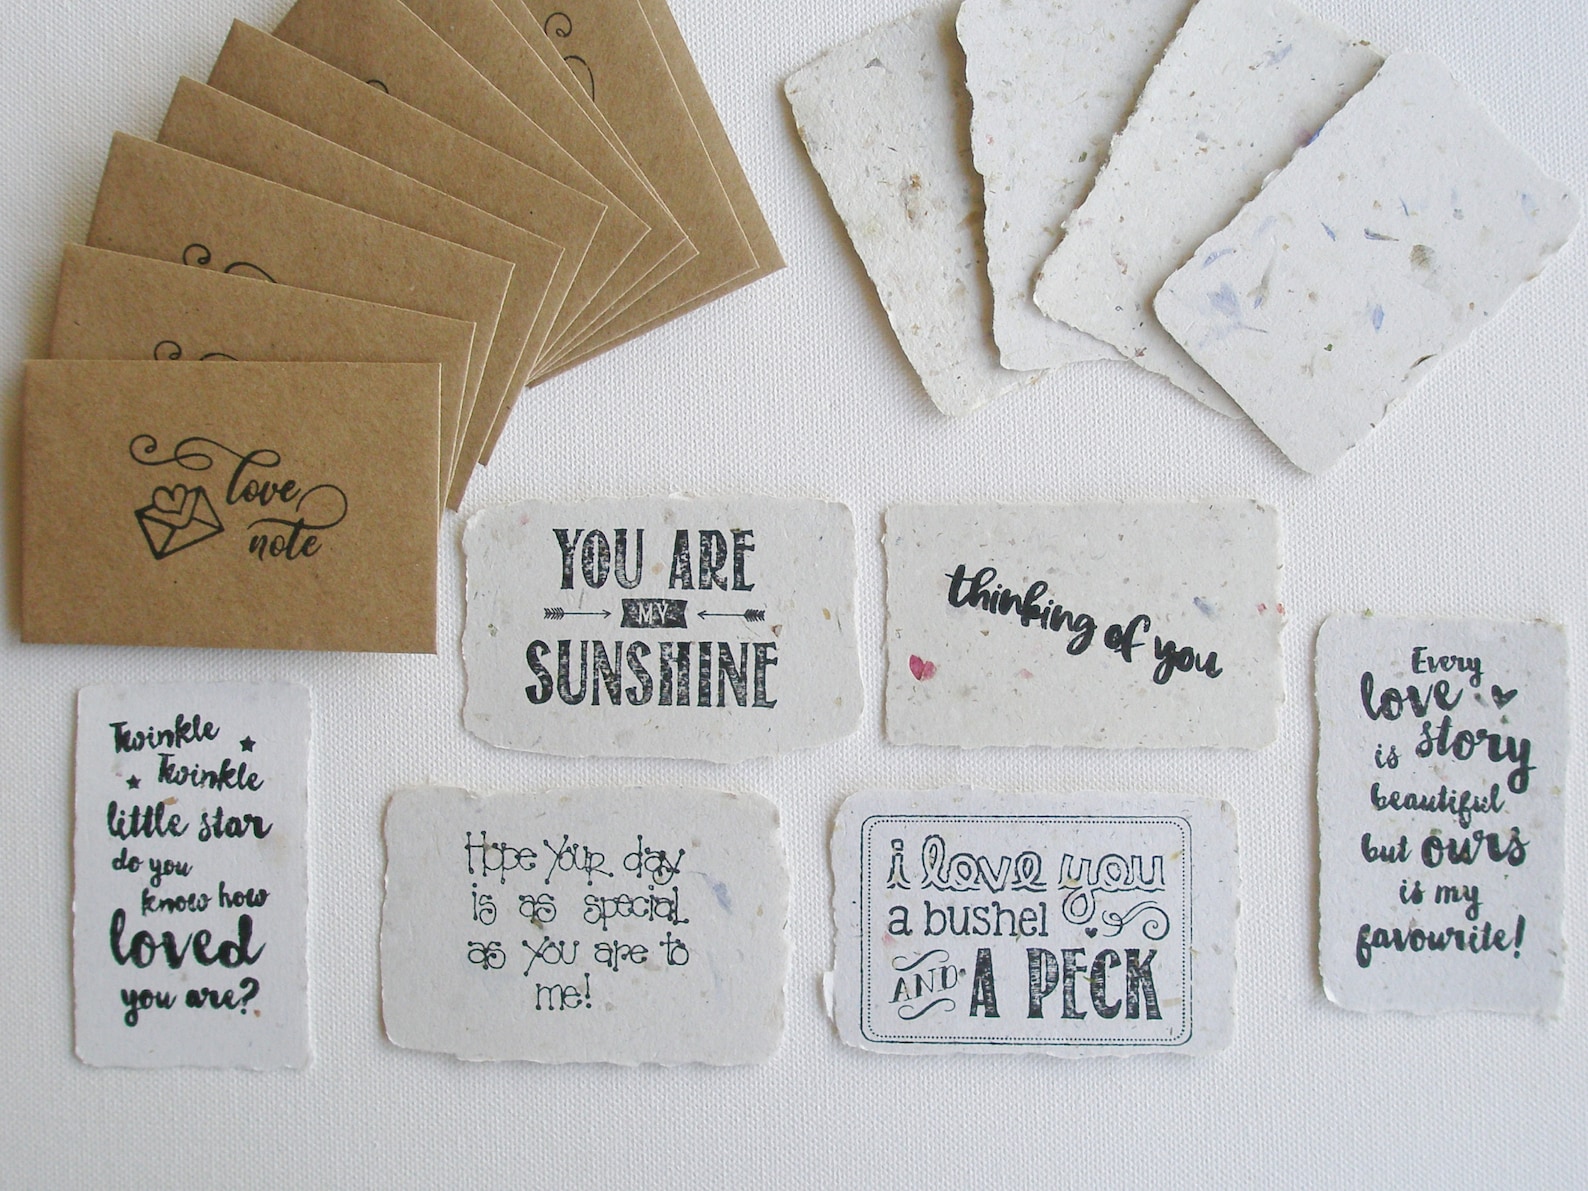 love
note
YOU ARE
MY
SUNSHINE
thinking of you
Twinkle
Twinkle
little star
do you
know how
loved
you are?
Hope your day
is as special
as you are to
me!
i love you
a bushel
AND A PECK
Every
love
is story
beautiful
but ours
is my
favourite!